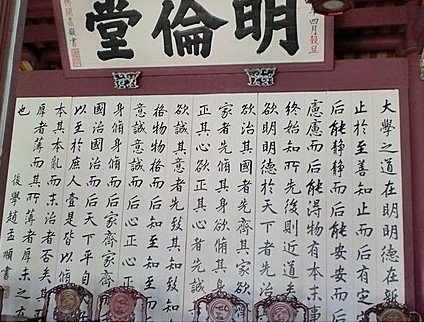 明倫堂
四月穀旦
敬書
大學之道在明明德在
止於至善知止而后有定
后能靜靜而后能安安而后
慮慮而后能得物有本末事
終始知所先後則近道矣
欲明明德於天下者先治
欲治其國者先齊其家欲
家者先脩其身欲脩其
正其心欲正其心者先誠
欲誠其意者先致其知
格物物格而后知至知至而
意誠意誠而后心正心
身脩身脩而后家齊家齊
國治國治而后天下平自
以至於庶人壹是皆以脩
本其本亂而末治者否矣其
厚者薄而其所薄者厚未之
也
後學趙孟頫書